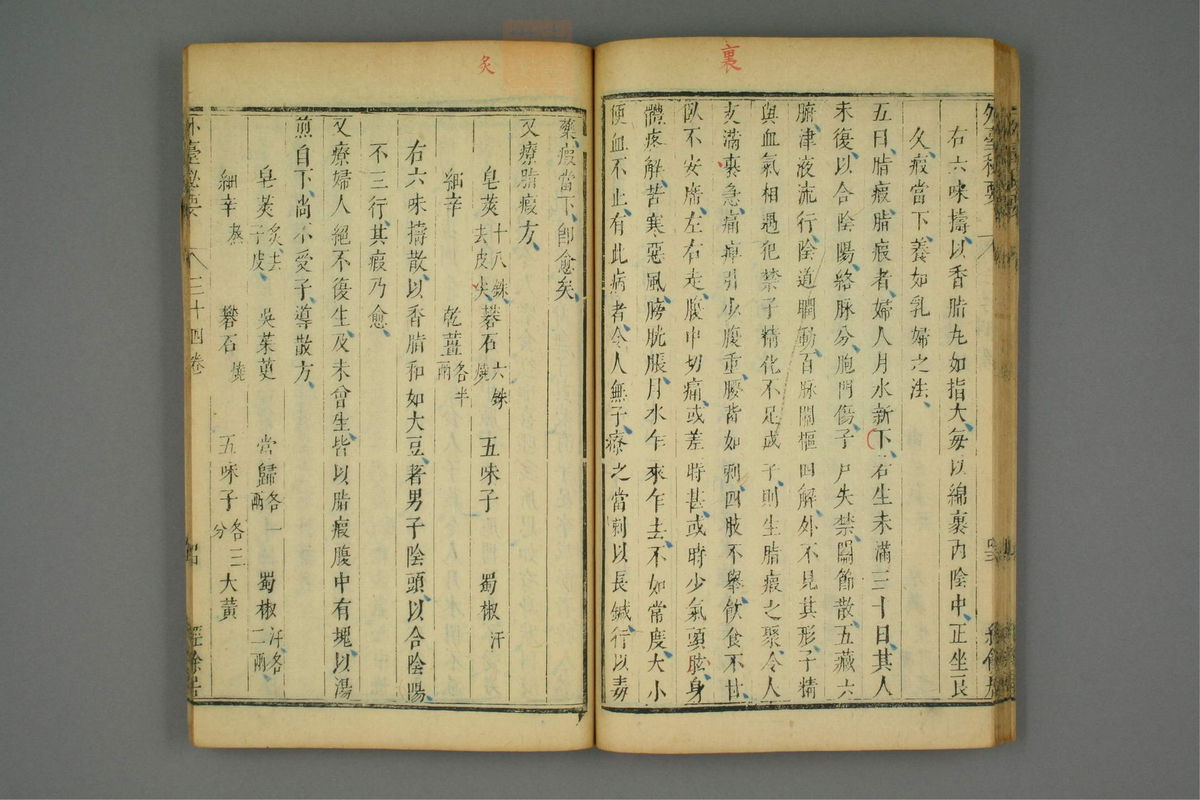 裏
右六味擣以香脂丸如指大每以綿裹内陰中正坐良
久瘕當下養如乳婦之法
五曰脂瘕脂瘕者婦人月水新下若生未滿三十日其人
未復以合陰陽絡脉分胞門傷子戶失禁關節散五藏六
腑津液流行陰道瞤動百脉關樞四解外不見其形子精
與血氣相遇犯禁子精化不足成子則生脂瘕之聚令人
支滿裏急痛痺引少腹重腰背如刺四肢不舉飲食不甘
臥不安席左右走腹中切痛或差時甚或時少氣頭眩身
體疼解苦寒惡風膀胱脹月水乍來乍去不如常度大小
便血不止有此病者令人無子療之當刺以長鍼行以毒
炙
藥瘕當下即愈矣
又療脂瘕方
皂莢十八銖去皮尖 礬石六銖燒 五味子 蜀椒汗
細辛 乾薑各半兩
右六味擣散以香脂和如大豆著男子陰頭以合陰陽
不三行其瘕乃愈
又療婦人絕不復生及未曾生皆以脂瘕腹中有塊以湯
煎自下尚不受子導散方
皂莢炙去子皮 吳茱萸 當歸各一兩 蜀椒汗各二兩
細辛熬 礬石燒 五味子各三分 大黃
外臺秘要 三十四卷